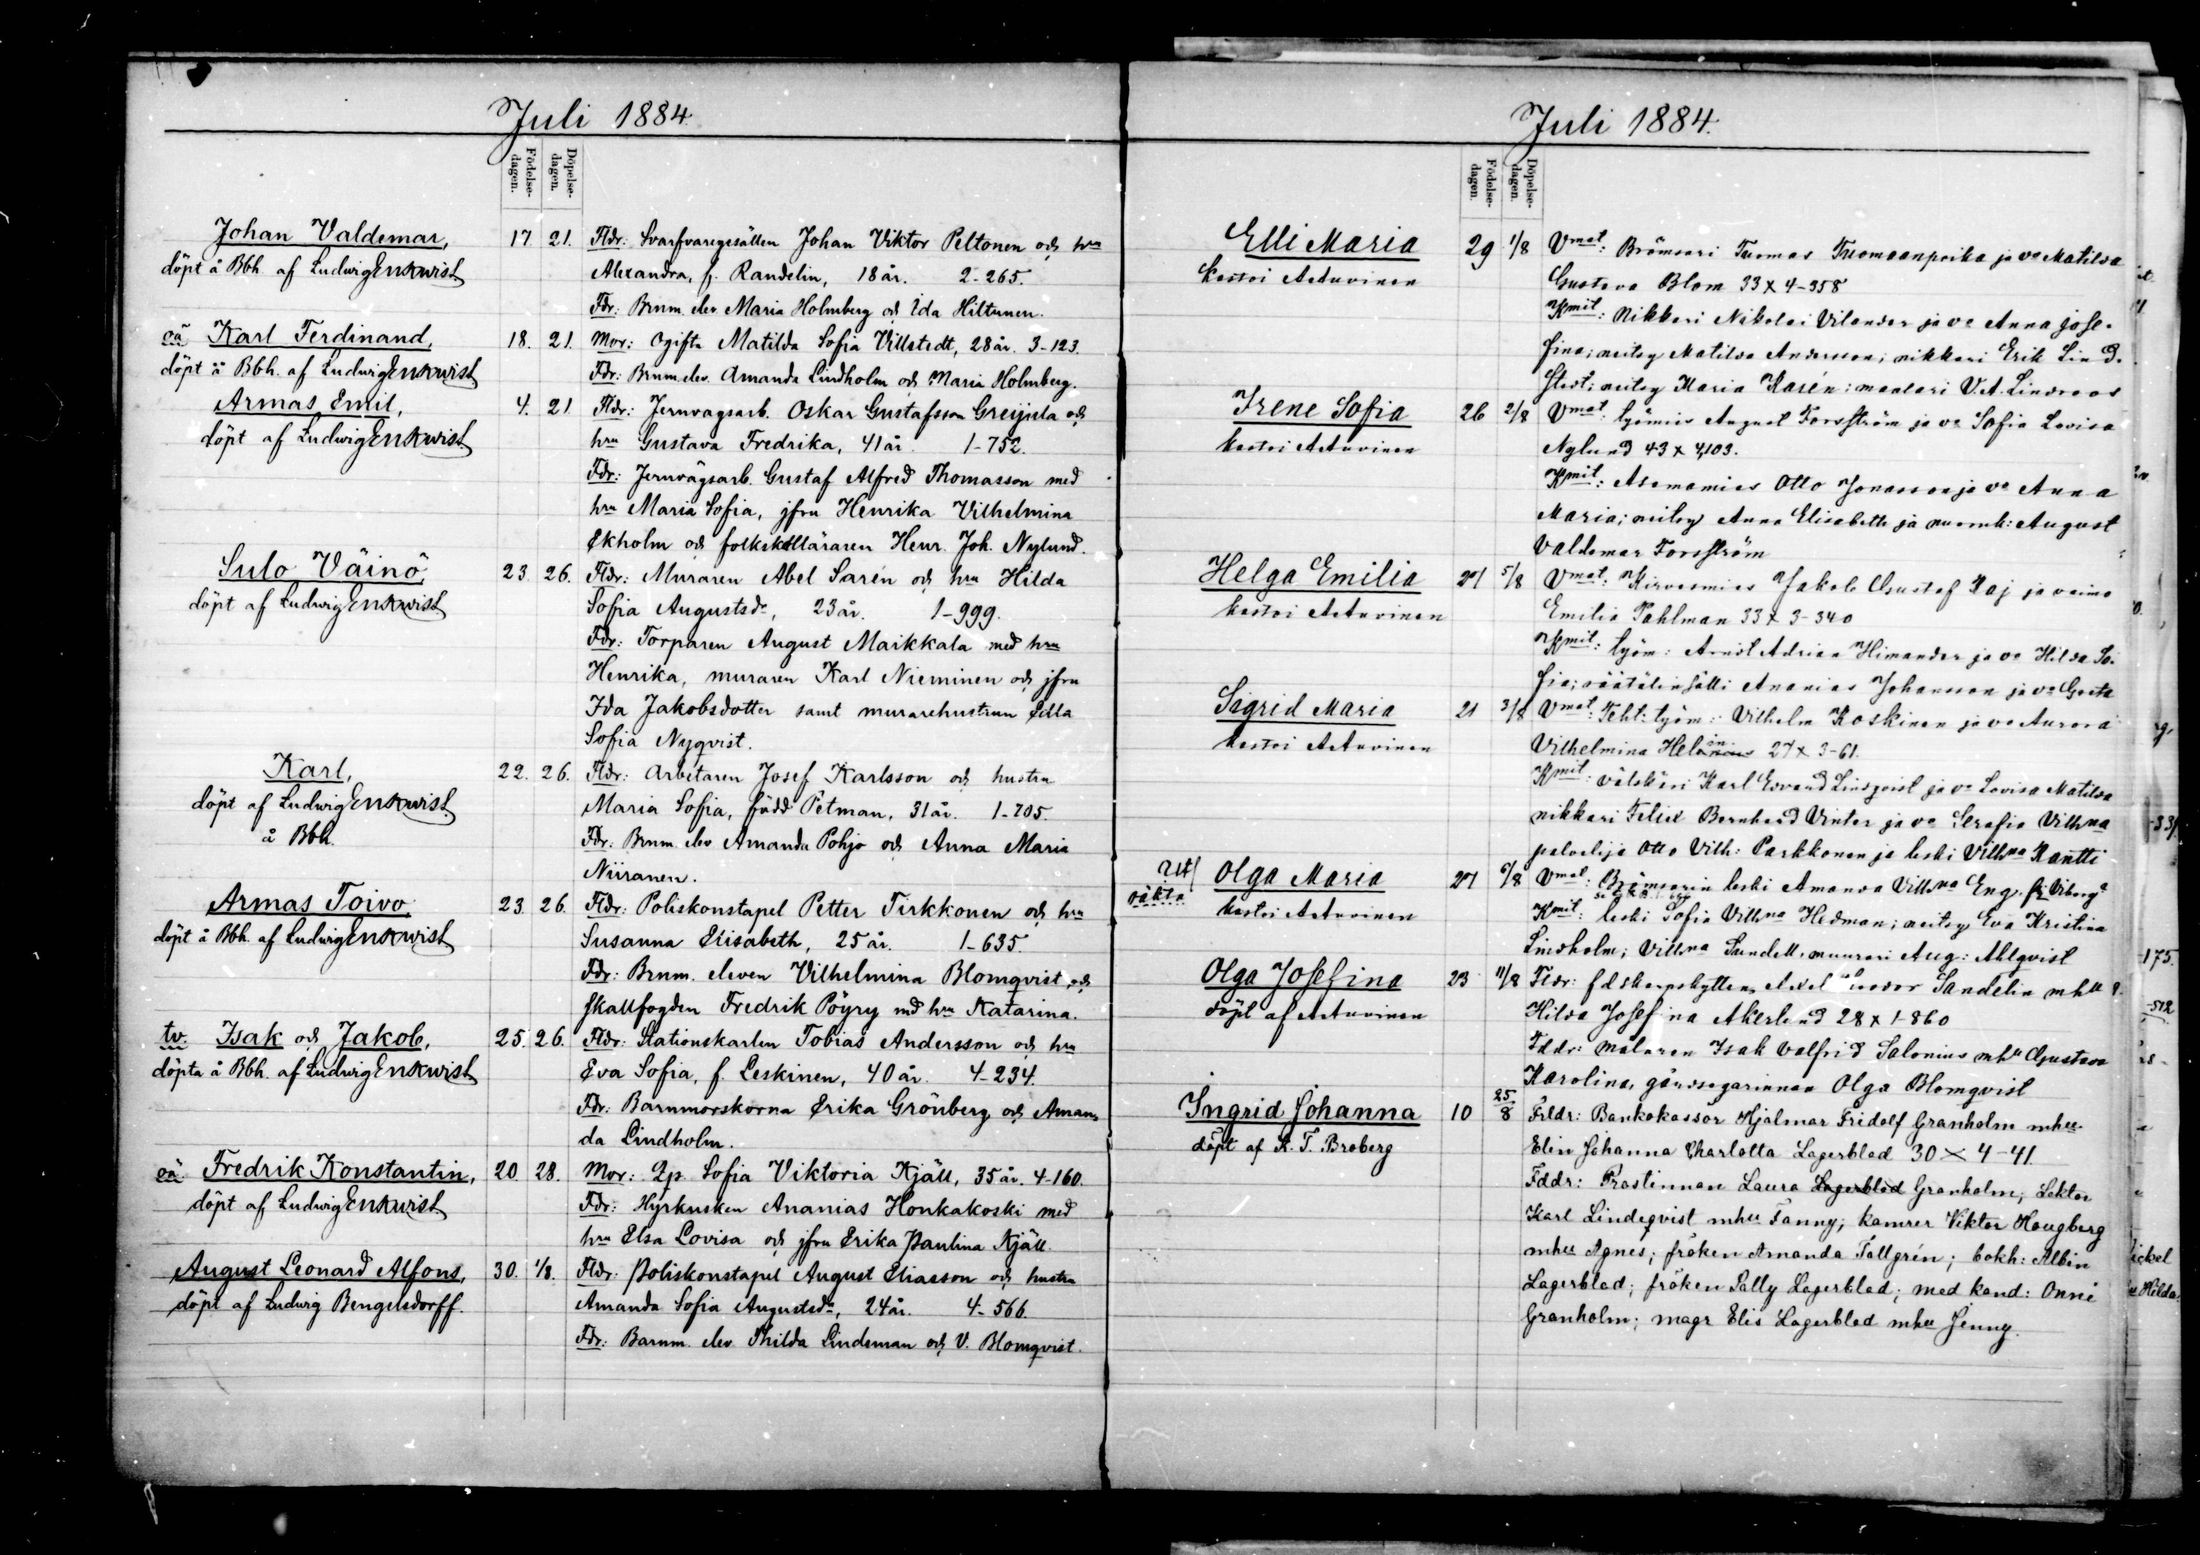 Juli 1884.
Födelse-
dagen.
Döpelse-
dagen.
Johan Valdemar,
döpt å Bbh. af Ludwig Enkvist
17. 21.
Fldr: Svarfvaregesällen Johan Viktor Peltonen och hru
Alexandra, f. Randelin, 18 år. 2-265.
Fdr: Brnm. elev Maria Holmberg och Ida Hiltunen.
oä Karl Ferdinand,
döpt å Bbh. af Ludwig Enkvist
18. 21.
Mor: Ogifta Matilda Sofia Villstedt, 28 år. 3-123.
Fdr: Brnm. elev. Amanda Lindholm och Maria Holmberg.
Armas Emil,
döpt af Ludwig Enkvist.
4. 21
Fldr: Jernvägsarb. Oskar Gustafsson och
hru Gustava Fredrika, 41 år. 1-752.
Fdr: Jernvägsarb. Gustaf Alfred Thomasson med
hru Maria Sofia, jfru Henrika Vilhelmina
Ekholm och folkskolläraren Henr. Joh. Nylund.
Sulo Väinö,
döpt af Ludwig Enkvist
23. 26.
Fldr: Muraren Abel Sarén och hru Hilda
Sofia Augustsdr, 23 år. 1-999.
Fdr: Torparen August Maikkala med hru
Henrika, muraren Karl Nieminen och jfru
Ida Jakobsdotter samt murarehustrun Edla
Sofia Nyqvist.
Karl,
döpt af Ludwig Enkvist.
å Bbh.
22. 26.
Fldr: Arbetaren Josef Karlsson och hustru
Maria Sofia, född Petman, 31 år. 1-705.
Fdr: Brnm. elev Amanda Pohjo och Anna Maria
Niiranen.
Armas Toivo,
döpt å Bbh. af Ludwig Enkvist
23. 26.
Fldr: Poliskonstapel Petter Tirkkonen och hru
Susanna Elisabeth, 25 år. 1-635.
Fdr: Brnm. eleven Vilhelmina Blomqvist och
skallfogden Fredrik Pöyry med hru Katarina.
tv. Isak och Jakob,
döpta å Bbh. af Ludwig Enkvist
25. 26.
Fldr: Stationskarlen Tobias Andersson och hru
Eva Sofia, f. Leskinen, 40 år. 4-234.
Fdr: Barnmorskorna Erika Grönberg och Aman-
da Lindholm.
oä Fredrik Konstantin,
döpt af Ludwig Enkvist
20. 28.
Mor: Qp. Sofia Viktoria Kjäll, 35 år. 4-160.
Fdr: Hyrkusken Ananias Honkakoski med
hru Elsa Lovisa och jfru Erika Paulina Kjäll.
August Leonard Alfons,
döpt af Ludwig Bengelsdorff.
30. 1/8.
Fldr: Poliskonstapel August Eliasson och hustru
Amanda Sofia Augustsdr, 24 år. 4-566.
Fdr: Barnm. elev. Thilda Lindeman och V. Blomqvist.
Juli 1884.
Födelse-
dagen.
Döpelse-
dagen.
Elli Maria
kastoi A Auvinen
29 1/8
Vmat: Brömsari Tuomas Tuomaanpoika ja vo Matilda
Gustava Blom 33 x 4-358
Kmit: Nikkari Nikolai Vilander ja vo Anna Jose-
fina; neitsy Matilda Andersson; nikkari Erik Lind-
stedt; neitsy Maria Kasén; maalari V.A. Lindroos
Irene Sofia
kastoi A Auvinen
26 2/8
Vmat: työmies August Forsström ja vo Sofia Lovisa
Nylund 43 x 4,103.
Kmit: Asemamies Otto Jonasson ja vo Anna
Maria; neitsy Anna Elisabeth ja August
Valdemar Forsström
Helga Emilia
kastoi A Auvinen
27 5/8
Vmat: Kirvesmies Jakob Gustaf Kaj ja vaimo
Emilia Pahlman 33 x 3-340
Kmit: työm: Arvid Adrian Himander ja vo Hilda So-
fia; räätälin sälli Ananias Johansson ja vo Greta
Sigrid Maria
kastoi A Auvinen
21 3/8
Vmat: Teht: työm: Vilhelm Koskinen ja vo Aurora
Vilhelmina Helin 27 x 3-61.
Kmit: välskäri Karl Edvard Lindqvist ja vo Lovisa Matilda
nikkari Felix Bernhard Vinter ja vo Serafia Vilhna
palvelija Otto Vilh: Parkkonen ja leski Vilhna Kantti
Olga Maria
kastoi A Auvinen
27 6/8
Vmat: Brömsarin leski Amanda Vilhna Eng. fr Viborg
Kmit: leski Sofia Vilhna Hedman; neitsy Eva Kristina
Lindholm; Vilhna Sundell, muurari Aug: Ahlqvist
Olga Josefina
döpt af A Auvinen
23 11/8
Fldr: f d skarpskytten Axel Teodor Sandelin mhu
Hilda Josefina Akerlund 28 x 1-860
Fddr: målaren Isak Valfrid Salonius mhu Gustava
Karolina, gårdsegarinnan Olga Blomqvist
Ingrid Johanna
döpt af K. T. Broberg
10 25/8
Frldr: Bankokassör Hjalmar Fridolf Granholm mhu
Elin Johanna Charlotta Lagerblad 30 x 4-41.
Fddr: Prostinnan Laura Lagerblad Granholm; Lektor
Karl Lindeqvist mhu Fanny; kamrer Viktor Hougberg
mhu Agnes; fröken Amanda Tallgrén; bokh: Albin
Lagerblad; fröken Sally Lagerblad; med kand: Onni
Granholm; magr Elis Lagerblad mhu Jenny.
175.
ickel
Hilda